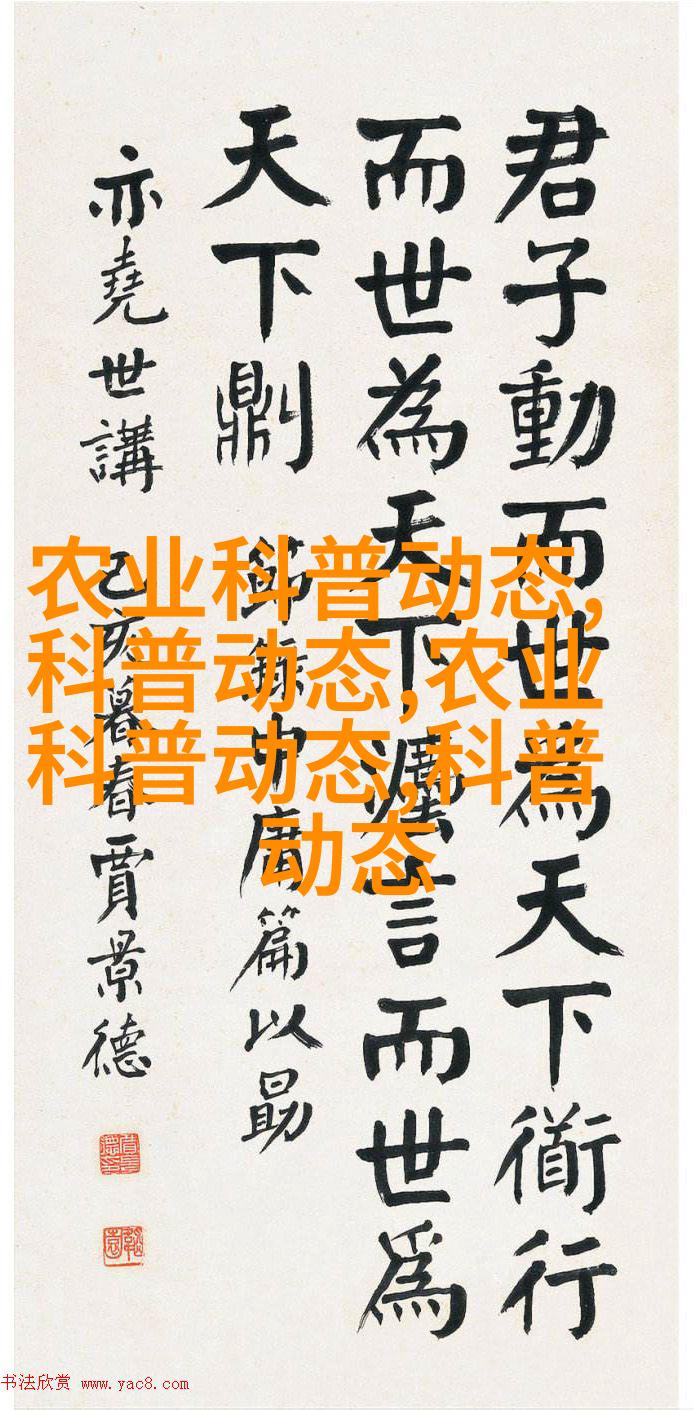 君子動而世為天下衜行
而世為天下灋言而世為
天下𠟭 節錄中庸篇以勗
亦堯世講 己亥暮春賈景德
农业科普动态,
科普动态,农业
科普动态,科普
动态
书法欣赏 www.yac8.com